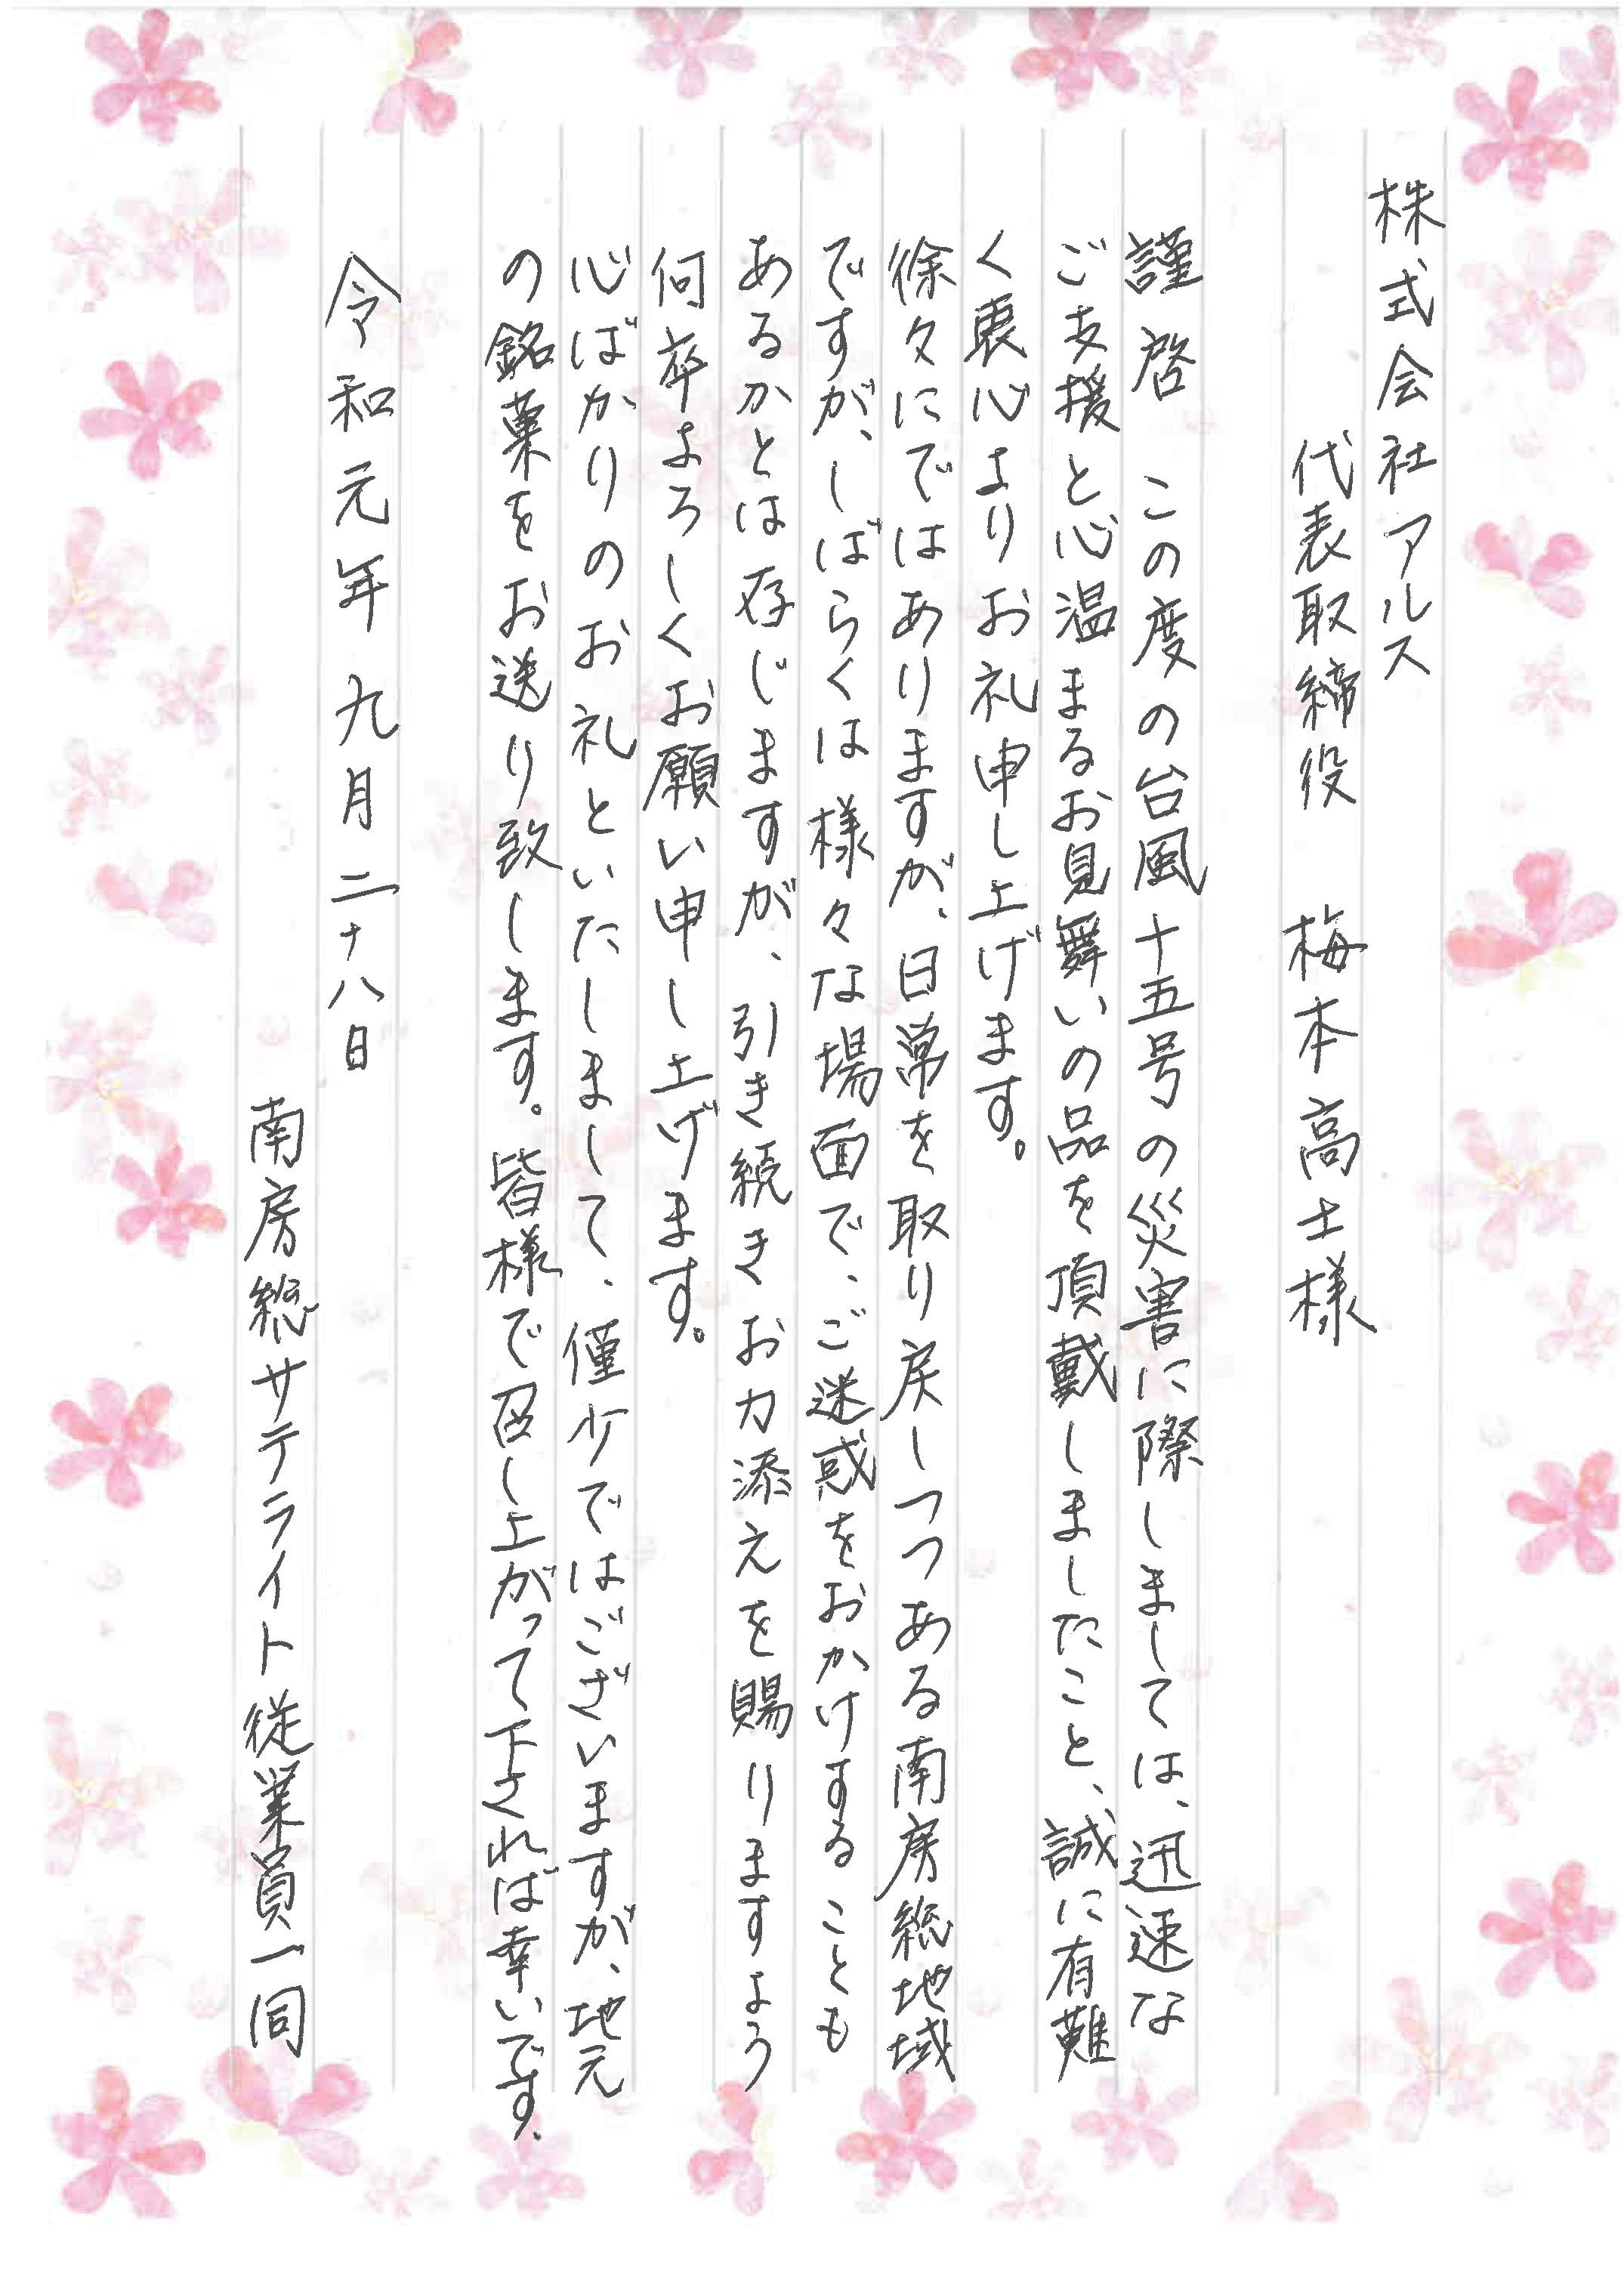 株式会社アルス
代表取締役　梅本高士様
謹啓　この度の台風十五号の災害に際しましては、迅速な
ご支援と心温まるお見舞いの品を頂戴しましたこと、誠に有難
く衷心よりお礼申し上げます。
徐々にではありますが、日常を取り戻しつつある南房総地域
ですが、しばらくは様々な場面で、ご迷惑をおかけすることも
あるかとは存じますが、引き続きお力添えを賜りますよう
何卒よろしくお願い申し上げます。
心ばかりのお礼といたしまして、僅少ではございますが、地元
の銘菓をお送り致します。皆様で召し上がって下されば幸いです。
令和元年九月二十八日
南房総サテライト従業員一同